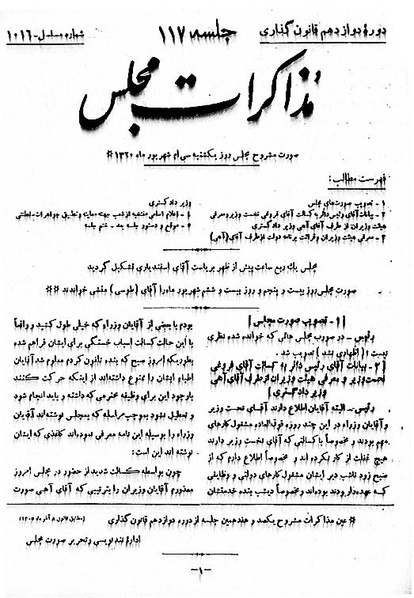 دورهٔ دوازدهم قانون گذاری
جلسه ۱۱۷
شماره مسلسل-۱۰۱۶
مذاکرات مجلس
صورت مشروح مجلس روز یکشنبه سی ام شهریور ماه ۱۳۲۰ #
فهرست مطالب:
۱ - تصویب صورت‌های مجلس
۲ - بیانات آقای رئیس دائر به کسالت آقای فروغی نخست وزیر و معرفی
هیئت وزیران از طرف آقای آهی وزیر دادگستری
۳ - معرفی هیئت وزیران و قرائت برنامه دولت از طرف آقای (آهی)
وزیر دادگستری
۴ - اعلام اسامی منتخبه از شعب جهة معاینه و تطبیق جواهرات سلطنتی
۵ - موقع و دستور جلسه بعد - ختم جلسه
مجلس یک ربع ساعت پیش از ظهر بریاست آقای اسفندیاری تشکیل گردید
صورت مجلس روز بیست و پنجم و روز بیست و ششم شهریور ماه را آقای (طوسی) منشی خواندند # #
[۱ - تصویب صورت مجلس]
رئیس - در صورت مجلس هائی که خوانده شد نظری
نیست؛ (اظهاری نشد) تصویب شد.
[۲ - بیانات آقای رئیس دائر به کسالت آقای فروغی
نخست وزیر و معرفی هیئت وزیران از طرف آقای آهی
وزیر دادگستری]
رئیس - البته آقایان اطلاع دارند آقای نخست وزیر
و آقایان وزراء در این چند روزه فوق‌العاده مشغول کارهای
مهم بودند و مخصوصاً با کسالتی که آقای نخست وزیر دارند
هیچ غفلت از کار نکرده‌اند و مخصوصاً اطلاع دارم که از
صبح زود تا شب دیر ایشان مشغول کارهای دولتی و وظایفی
که عهده‌دار شده‌اند بوده‌اند و مخصوصاً دیشب بنده خدمتشان
بودم با جمعی از آقایان وزراء که خیلی طول کشید و واقعاً
با این حالت کسالت اسباب خستگی برای ایشان فراهم شده
بطوریکه امروز صبح که بنده تلفون کردم معلوم شد آقایان
اطباء ایشان را ممنوع داشته‌اند از اینکه حرکت کنند
باوجود این برای وظیفه حتمی که داشته و باید انجام شود
و تعطیل نشود بموجب مراسله که بمجلس نوشته‌اند آقایان
وزراء را بوسیله این نامه معرفی فرموده‌اند کاغذی که ایشان
نوشته اند این است:
چون بواسطه کسالت شدید از حضور در مجلس امروز
معذورم آقایان وزیران را بترتیبی که آقای آهی صورت
# عین مذاکرات مشروح یکصد و هفدهمین جلسه از دوره دوازدهم قانون گذاری
اداره تند نویسی و تحریر صورت مجلس
-۱-